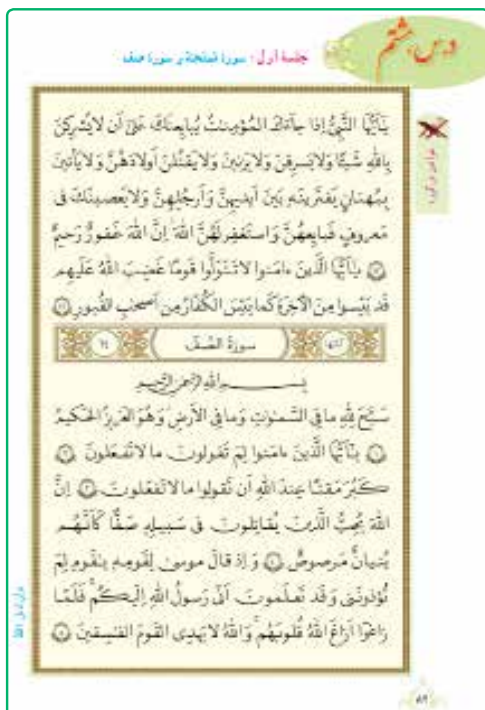 درس هشتم
جلسهٔ اول: سورهٔ ممتحنة و سورهٔ صف
يَـٰٓأَيُّهَا النَّبِيُّ إِذا جآءَكَ المُؤمِنـٰتُ يُبايِعنَكَ عَلىٰٓ أَن لايُشرِكنَ
بِاللهِ شَيئًا وَلايَسرِقنَ وَلايَزنينَ وَلايَقتُلنَ أَولادَهُنَّ وَلايَأتينَ
بِبُهتانٍ يَفتَرينَهو بَينَ أَيديهِنَّ وَأَرجُلِهِنَّ وَلايَعصينَكَ فى
مَعروفٍ فَبايِعهُنَّ وَاستَغفِر لَهُنَّ اللهَ إِنَّ اللهَ غَفورٌ رَحيمٌ
۱۲ يَـٰٓأَيُّهَا الَّذينَ ءامَنوا لاتَتَوَلَّوا قَومًا غَضِبَ اللهُ عَلَيهِم
قَد يَئِسوا مِنَ الأخِرَةِ كَما يَئِسَ الكُفّارُ مِن أَصحٰبِ القُبورِ ۱۳
آياتها سورة الصف ۱۴
بسم الله الرحمن الرحيم
سَبَّحَ لِلّهِ ما فِى السَّمـٰوٰتِ وَما فِى الأَرضِ وَهُوَ العَزيزُ الحَكيمُ
۱ يَـٰٓأَيُّهَا الَّذينَ ءامَنوا لِمَ تَقولونَ ما لاتَفعَلونَ ۲
كَبُرَ مَقتًا عِندَ اللهِ أَن تَقولوا ما لاتَفعَلونَ ۳ إِنَّ
اللهَ يُحِبُّ الَّذينَ يُقاتِلونَ فى سَبيلِهى صَفًّا كَأَنَّهُم
بُنيانٌ مَرصوصٌ ۴ وَإِذ قالَ موسىٰ لِقَومِهى يـٰقَومِ لِمَ
تُؤذونَنى وَقَد تَعلَمونَ أَنّى رَسولُ اللهِ إِلَيكُم فَلَمّا
زاغوٓا أَزاغَ اللهُ قُلوبَهُم وَاللهُ لايَهدِى القَومَ الفـٰسِقينَ ۵